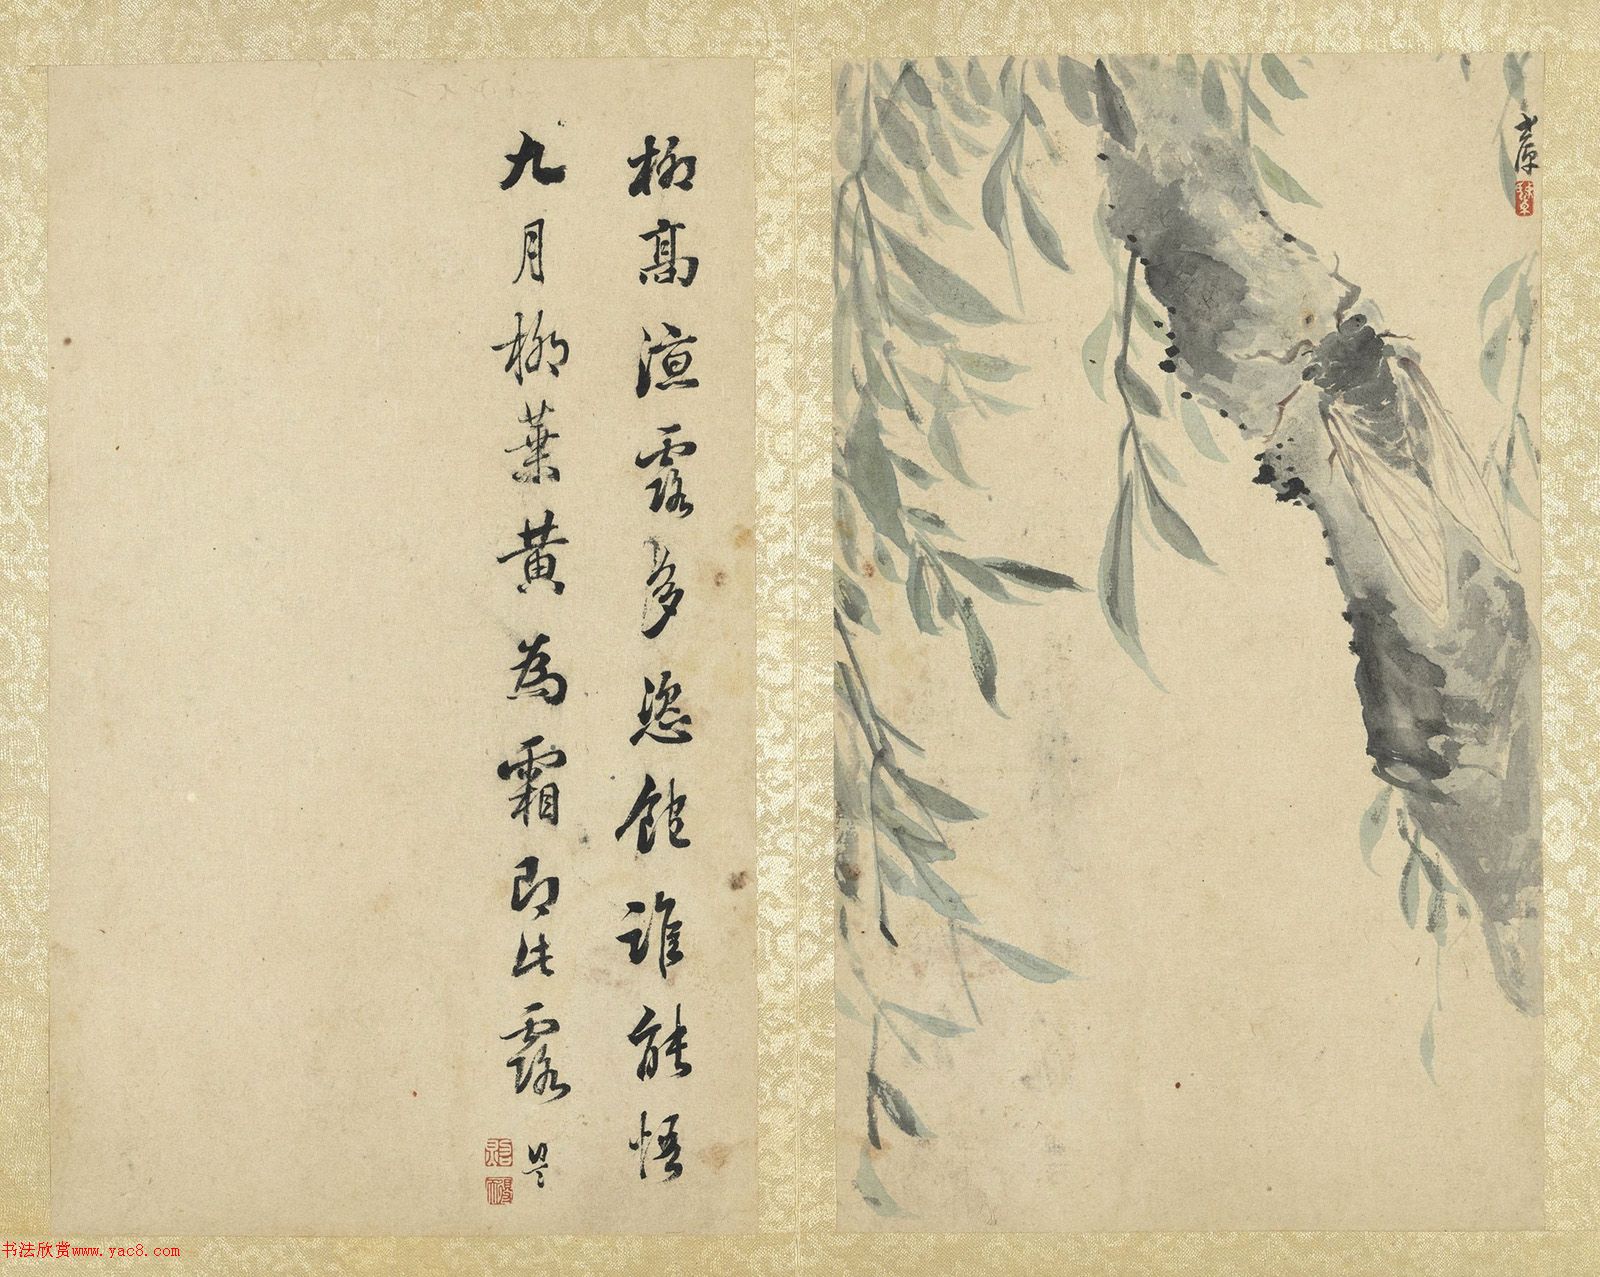 柳高露多恣飽誰能悟
九月柳葉黃為霜即此露
題
书法欣赏www.yac8.com